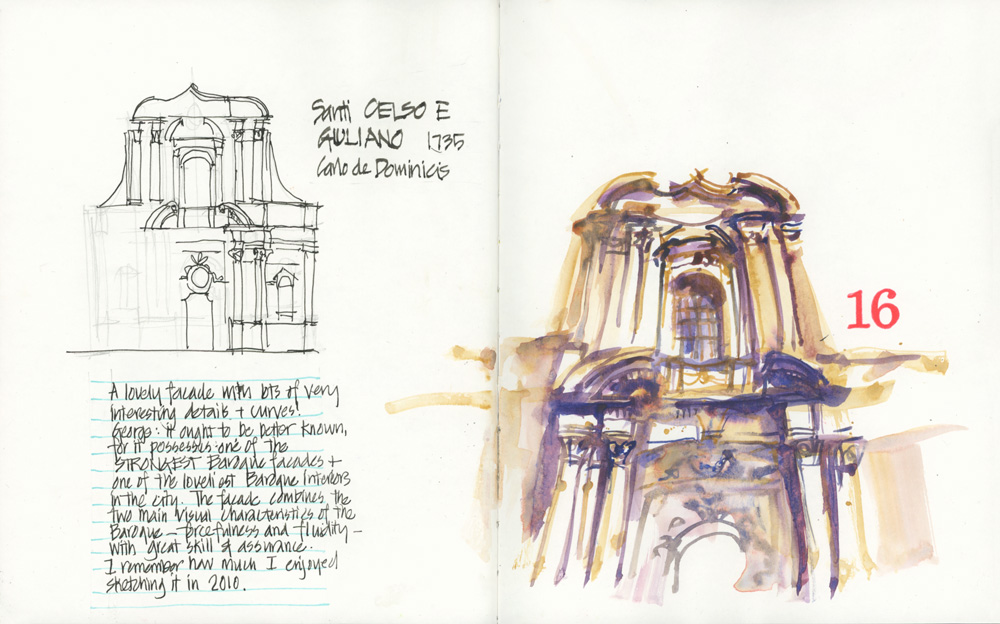 Santi CELSO E
GIULIANO 1735
Carlo de Dominicis
A lovely facade with lots of very
interesting details + curves!
George: it ought to be better known,
for it possesses one of the
STRONGEST Baroque facades +
one of the loveliest Baroque Interiors
in the city. The facade combines, the
two main visual characteristics of the
Baroque — forcefulness and fluidity —
with great skill & assurance.
I remember how much I enjoyed
sketching it in 2010.
16